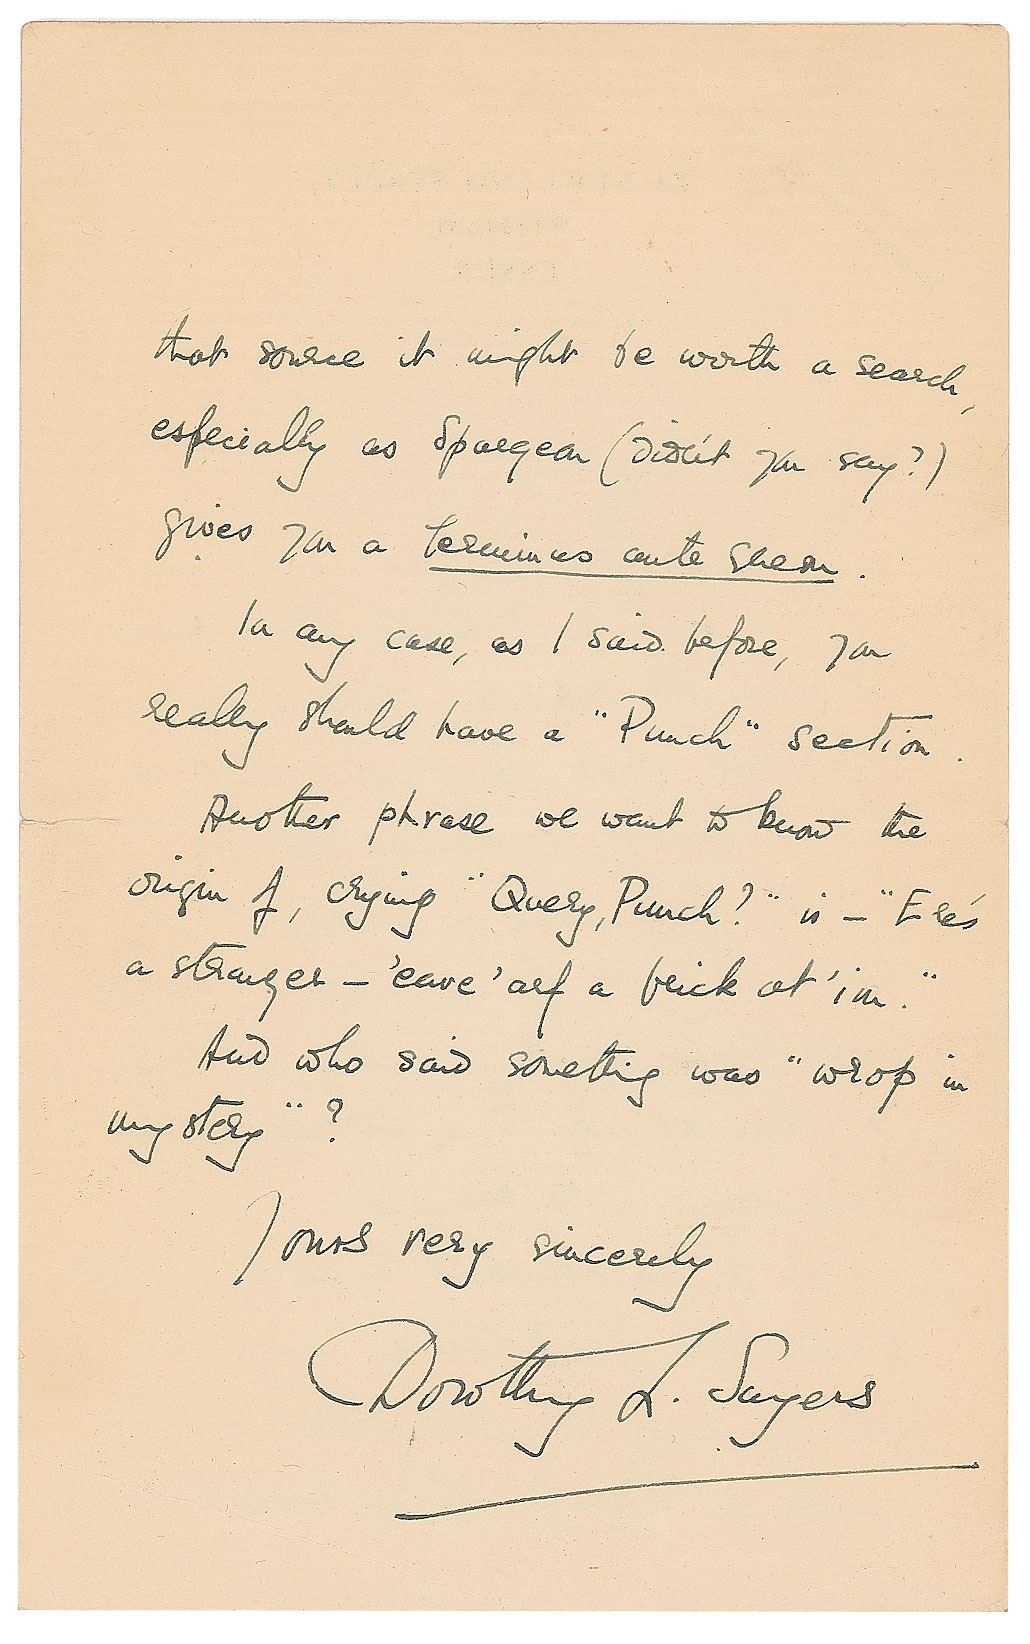 that source it might be worth a search,
especially as Spurgeon (didn't you say?)
gives you a terminus ante quem.
In any case, as I said before, you
really should have a "Punch" section.
Another phrase we want to know the
origin of, crying "Query, Punch?" is – "'Ere's
a stranger – 'eave 'arf a brick at 'im."
And who said something was "wrop in
mystery"?
Yours very sincerely
Dorothy L. Sayers